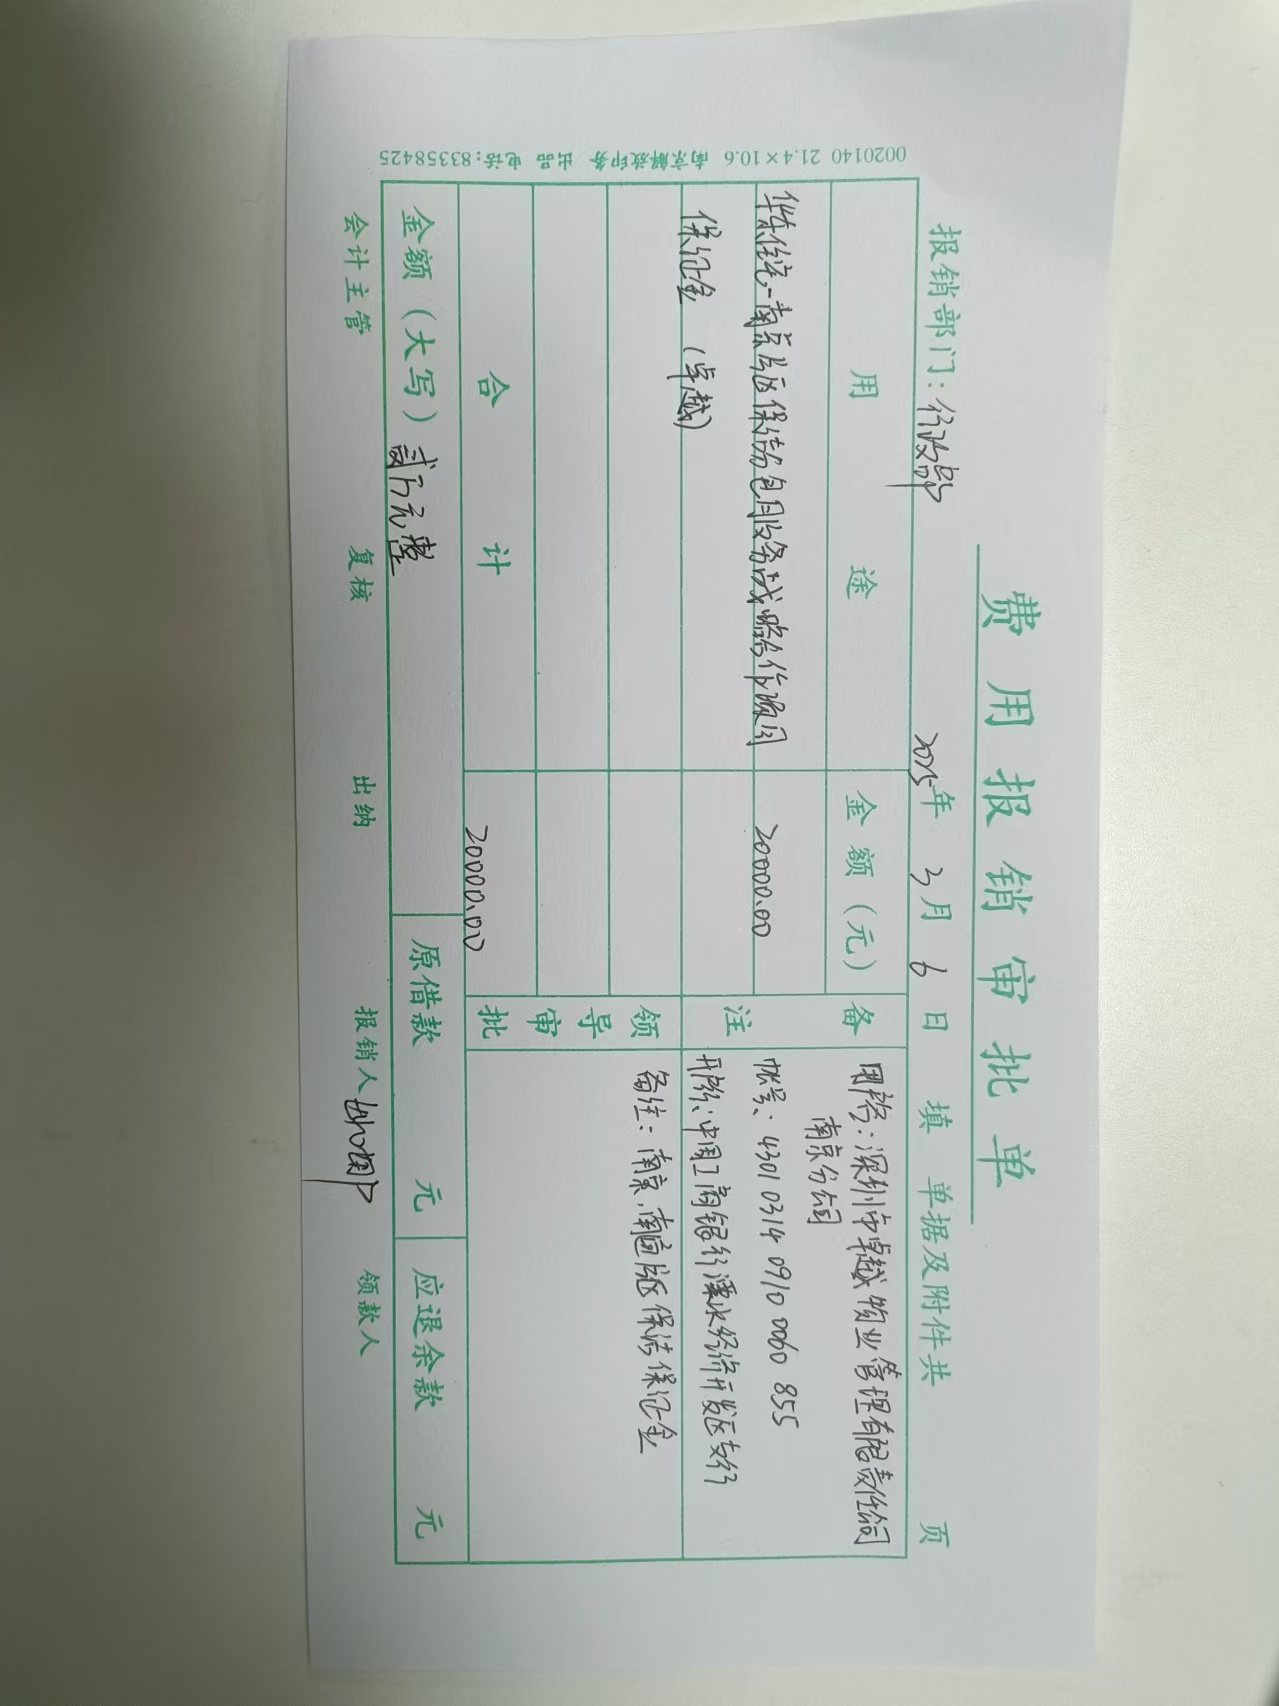 费用报销审批单
报销部门：行政部 2025年 3月 6日 填 单据及附件共 页
用途 金额（元） 备注
华东住宅-南京片区保洁分包服务战略合作协议 20000.00
保证金（卓越）
户名：深圳市卓越物业管理有限责任公司
南京分公司
帐号：4301 0314 0910 0060 855
开户行：中国工商银行溧水经济开发区支行
领导审批
备注：南京，南通片区保洁保证金
合计 20000.00
金额（大写）贰万元整 原借款 元 应退余款 元
会计主管 复核 出纳 报销人 领款人
0020140 21.4×10.6 南京解放印务 出品 电话：83358425